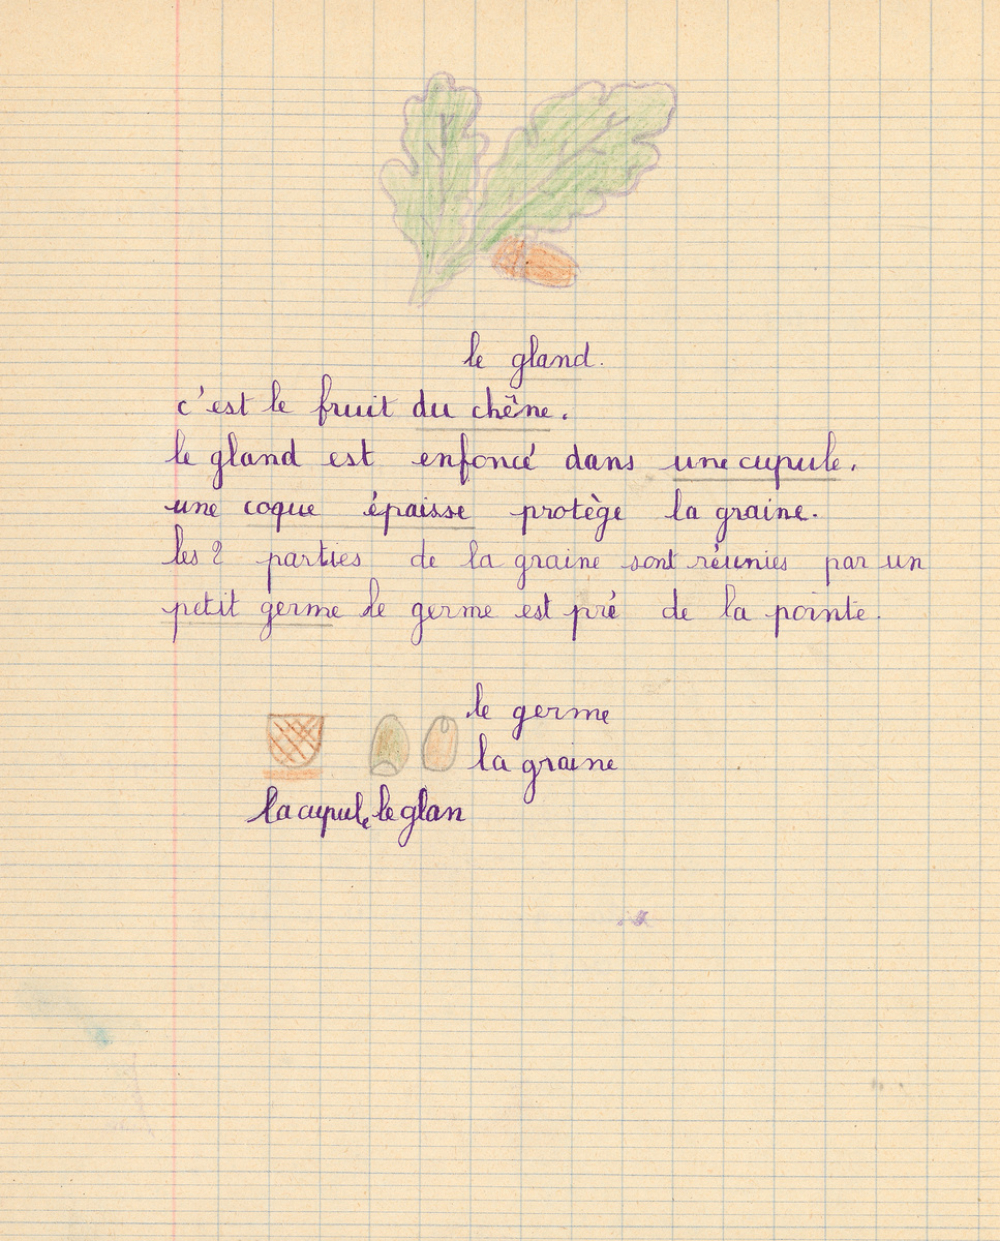 le gland.
c'est le fruit du chêne.
le gland est enfoncé dans une cupule.
une coque épaisse protège la graine.
les 2 parties de la graine sont réunies par un
petit germe le germe est pré de la pointe.
le germe
la graine
la cupule le glan